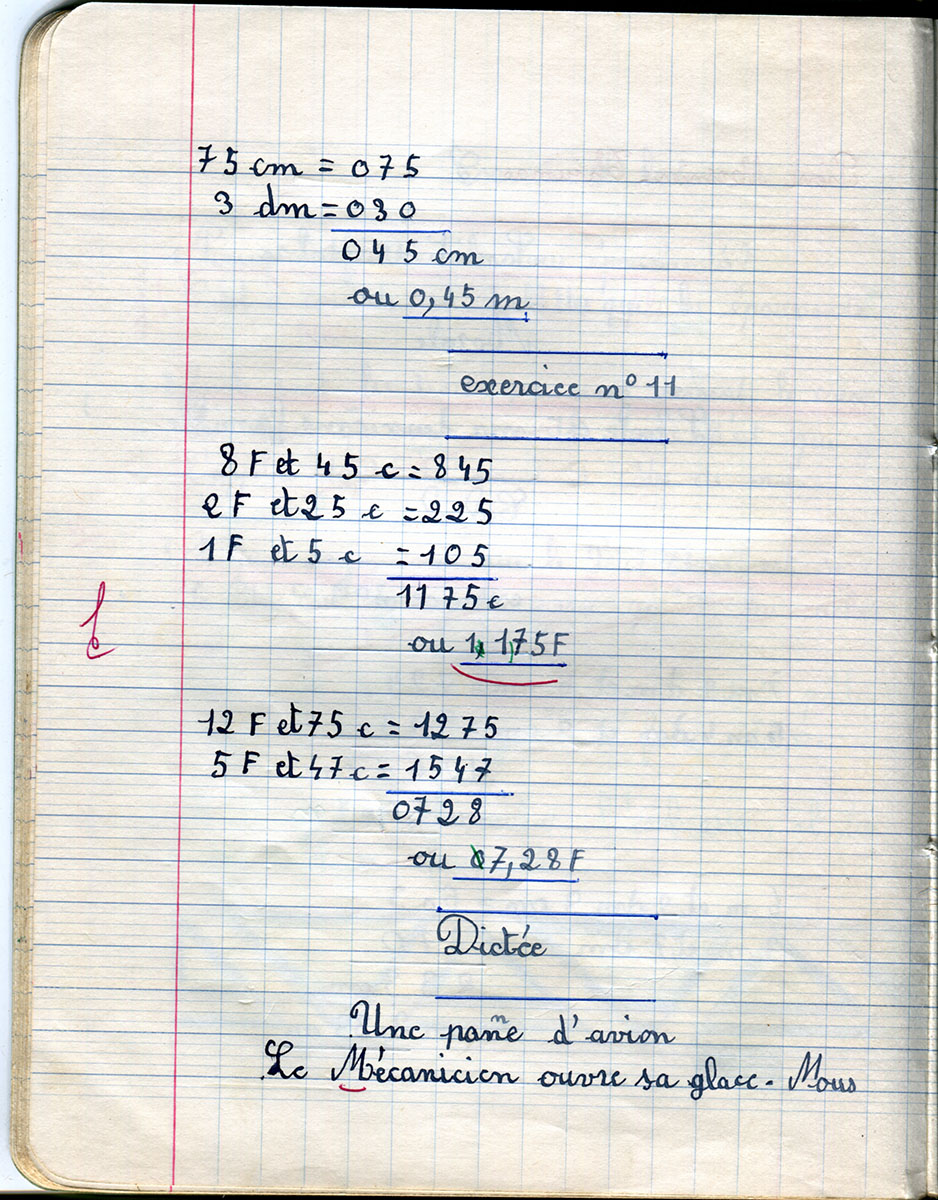 75 cm = 075
3 dm = 030
045 cm
ou 0,45 m
exercice n° 11
8 F et 45 c = 845
2 F et 25 c = 225
1 F et 5 c = 105
1175 c
ou 1,175 F
12 F et 75 c = 1275
5 F et 47 c = 1547
0728
ou 07,28 F
Dictée
Une panne d'avion
Le Mécanicien ouvre sa glace. Nous